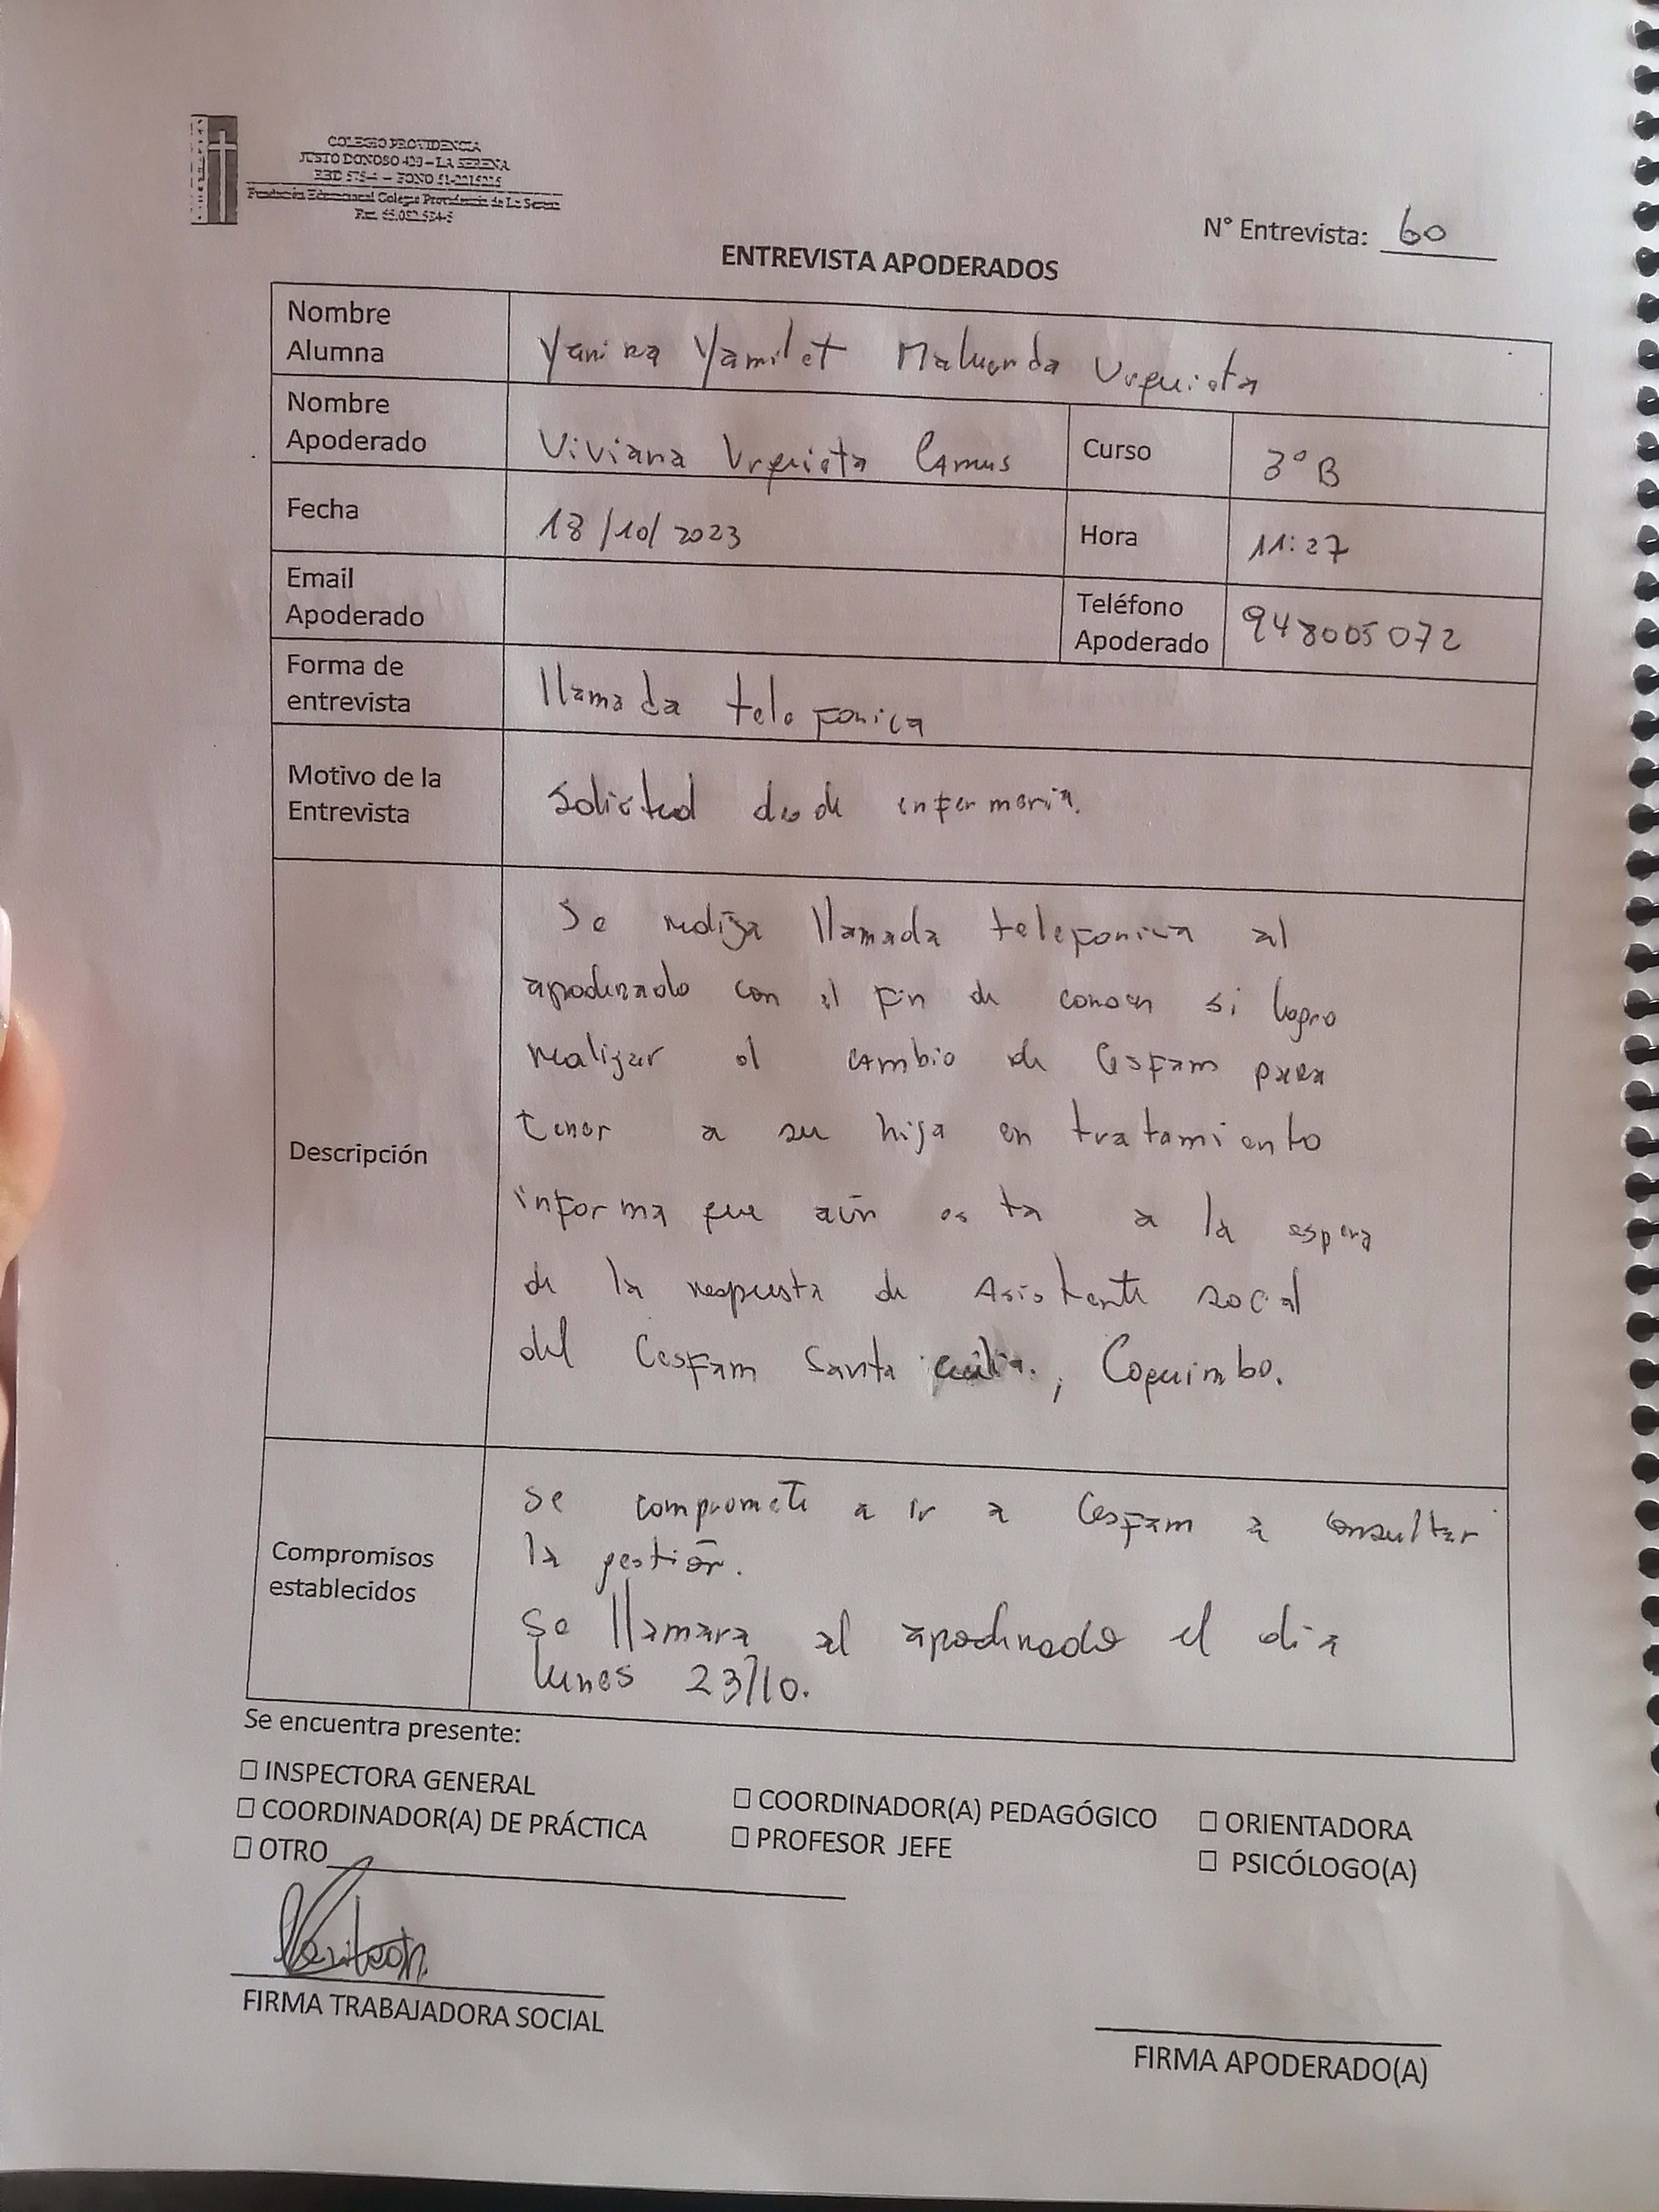 COLEGIO PROVIDENCIA
JUSTO DONOSO 420 – LA SERENA
RBD 575-4 – FONO 51-2215225
Fundación Educacional Colegio Providencia de La Serena
N° Entrevista: 60
ENTREVISTA APODERADOS
Nombre Alumna
Yanira Yamilet Maluenda Urquieta
Nombre Apoderado
Viviana Urquieta Camus
Curso
3° B
Fecha
18/10/2023
Hora
11:27
Email Apoderado
Teléfono Apoderado
948005072
Forma de entrevista
llamada telefonica
Motivo de la Entrevista
Solicitud desde enfermeria.
Descripción
Se realiza llamada telefonica al
apoderado con el fin de conocer si logro
realizar el cambio de Cesfam para
tener a su hija en tratamiento
informa que aún esta a la espera
de la respuesta de Asistente social
del Cesfam Santa cecilia., Coquimbo.
Compromisos establecidos
se compromete a ir a Cesfam a consultar
la gestión.
Se llamara al apoderado el dia
lunes 23/10.
Se encuentra presente:
☐ INSPECTORA GENERAL
☐ COORDINADOR(A) PEDAGÓGICO
☐ ORIENTADORA
☐ COORDINADOR(A) DE PRÁCTICA
☐ PROFESOR JEFE
☐ PSICÓLOGO(A)
☐ OTRO
FIRMA TRABAJADORA SOCIAL
FIRMA APODERADO(A)